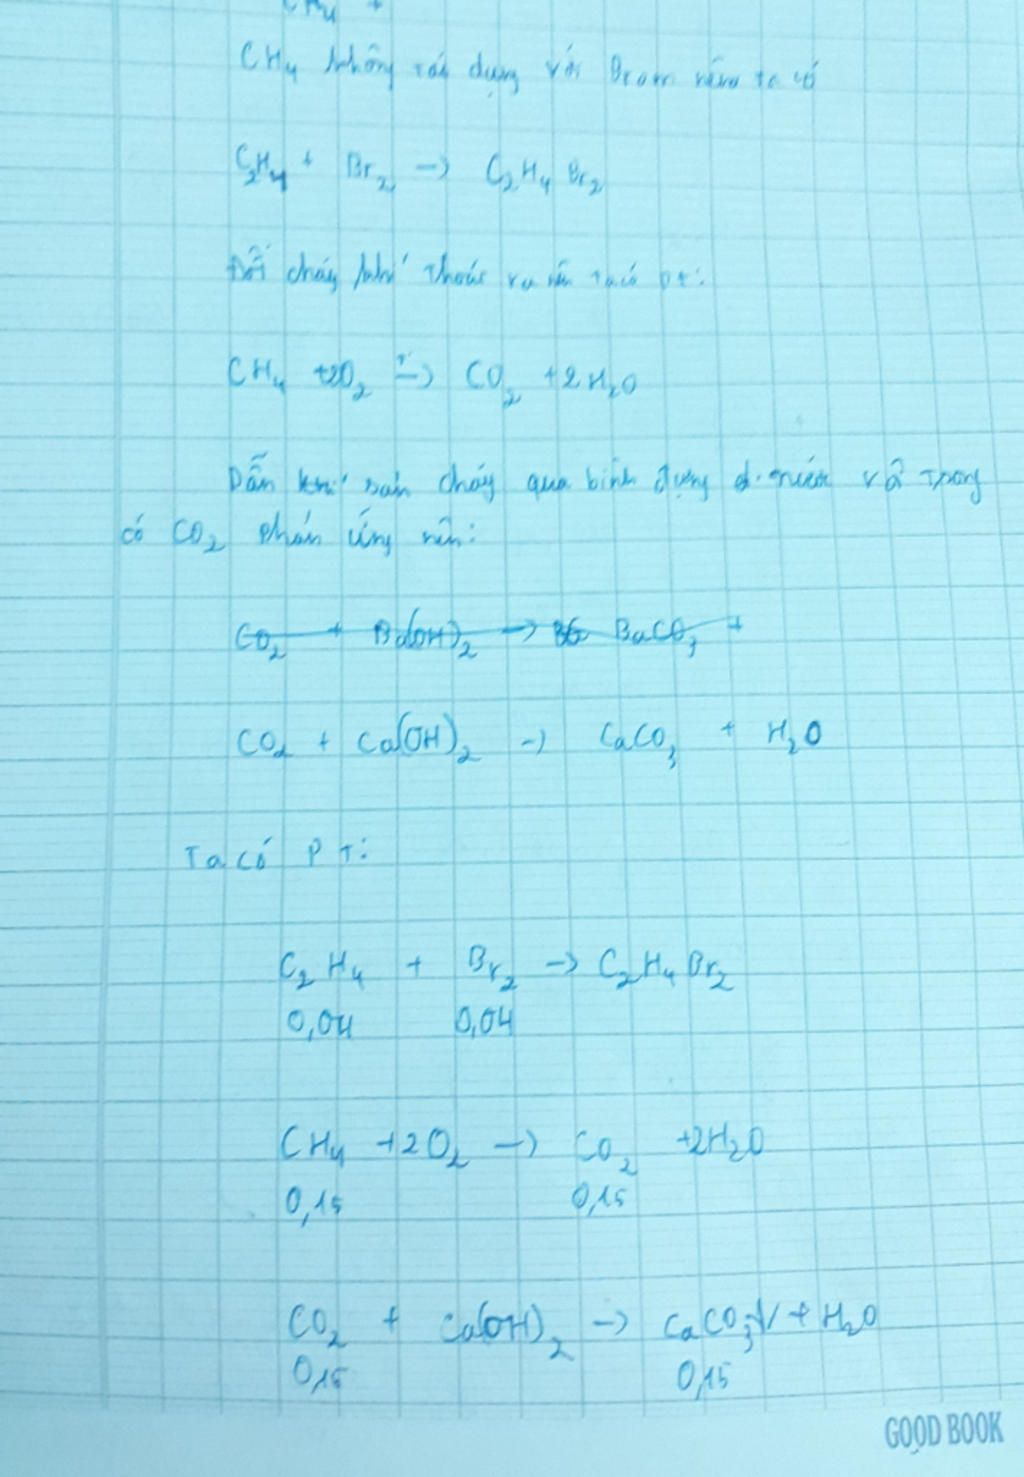 CH4 +
CH4 không tác dụng với Brom nên ta có
C2H4 + Br2 → C2H4Br2
Đốt cháy khí thoát ra nên ta có pt:
CH4 + 2O2 → CO2 + 2H2O
Dẫn khí sản cháy qua bình đựng vôi trong
có CO2 phản ứng nên:
CO2 + Ba(OH)2 → BaCO3 +
CO2 + Ca(OH)2 → CaCO3 + H2O
Ta có PT:
C2H4 + Br2 → C2H4Br2
0,04 0,04
CH4 + 2O2 → CO2 + 2H2O
0,15 0,15
CO2 + Ca(OH)2 → CaCO3↓ + H2O
0,15 0,15
GOOD BOOK